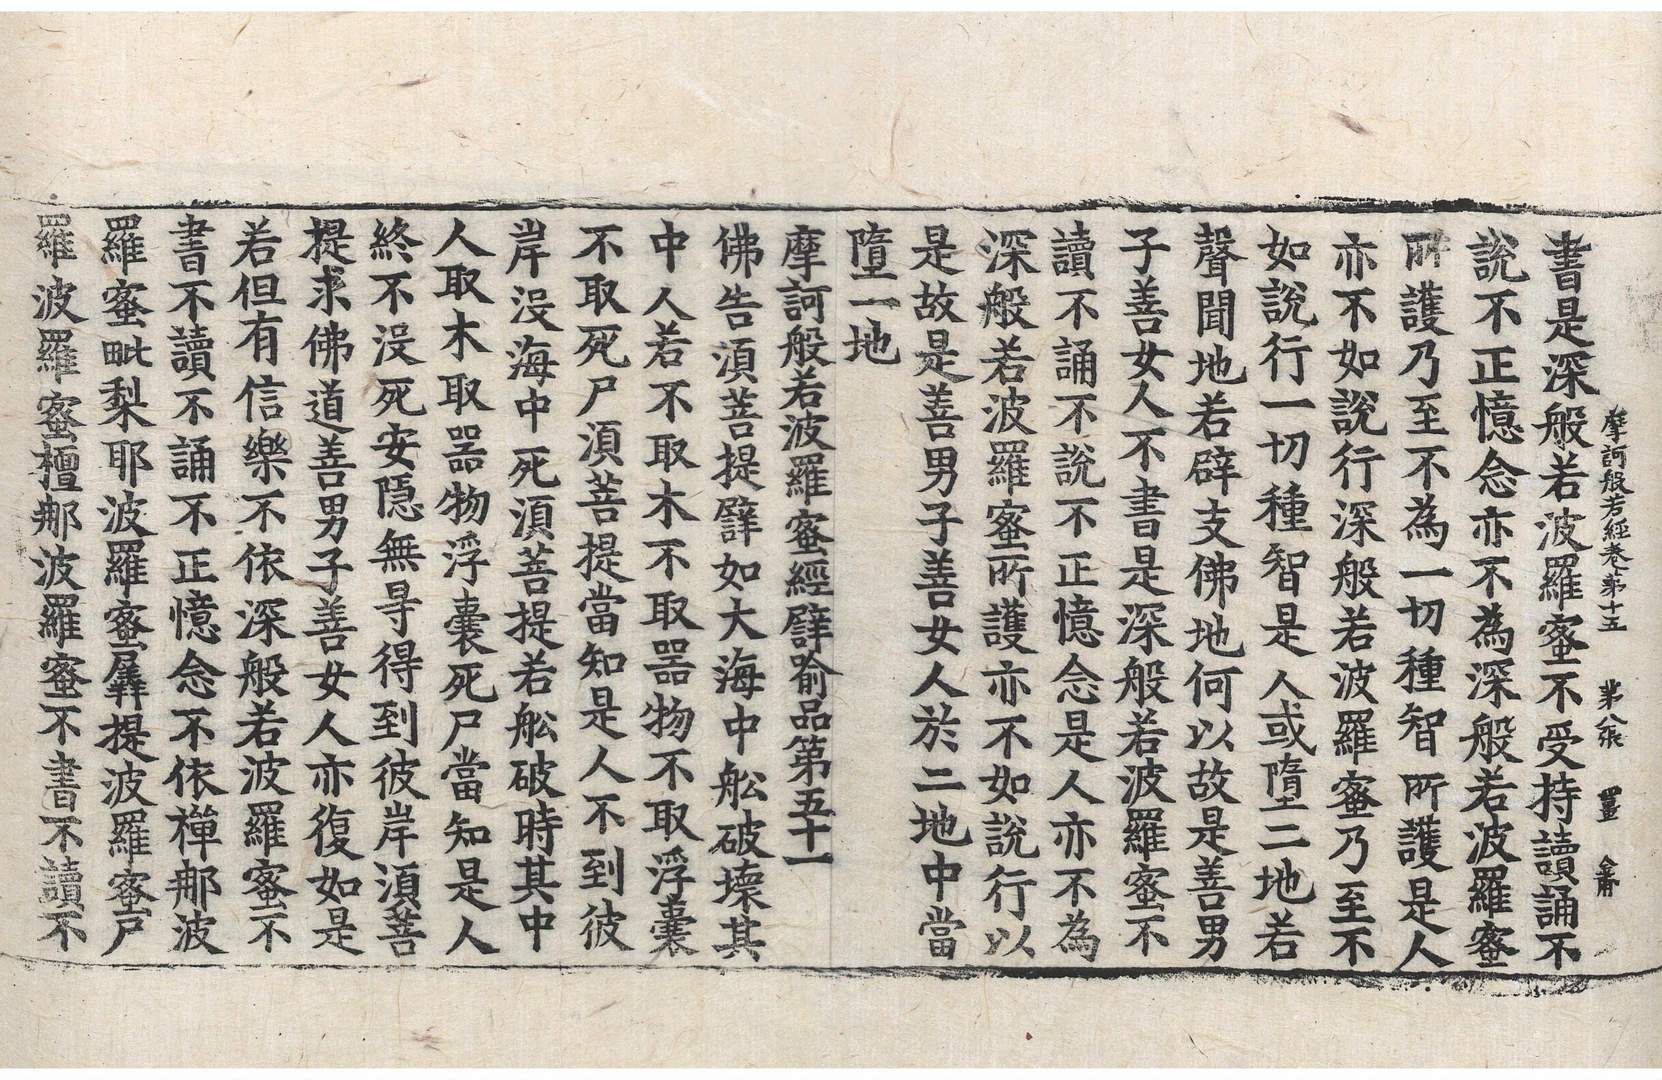 摩訶般若經卷第十五　第八張　畺　金齊
書是深般若波羅蜜不受持讀誦不
說不正憶念亦不為深般若波羅蜜
所護乃至不為一切種智所護是人
亦不如說行深般若波羅蜜乃至不
如說行一切種智是人或墮二地若
聲聞地若辟支佛地何以故是善男
子善女人不書是深般若波羅蜜不
讀不誦不說不正憶念是人亦不為
深般若波羅蜜所護亦不如說行以
是故是善男子善女人於二地中當
墮一地
摩訶般若波羅蜜經譬喻品第五十一
佛告湏菩提譬如大海中舩破壞其
中人若不取木不取器物不取浮囊
不取死尸湏菩提當知是人不到彼
岸沒海中死湏菩提若舩破時其中
人取木取器物浮囊死尸當知是人
終不沒死安隱無㝵得到彼岸湏菩
提求佛道善男子善女人亦復如是
若但有信樂不依深般若波羅蜜不
書不讀不誦不正憶念不依禪那波
羅蜜毗梨耶波羅蜜羼提波羅蜜尸
羅波羅蜜檀那波羅蜜不書不讀不